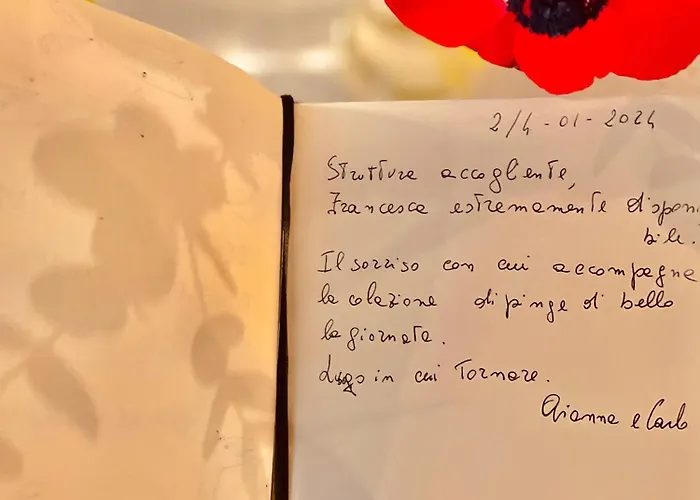 2/4-01-2024
Struttura accogliente,
Francesca estremamente disponi
bile.
Il sorriso con cui accompagna
la colazione dipinge di bello
la giornata.
Luogo in cui tornare.
Arianna e Carlo